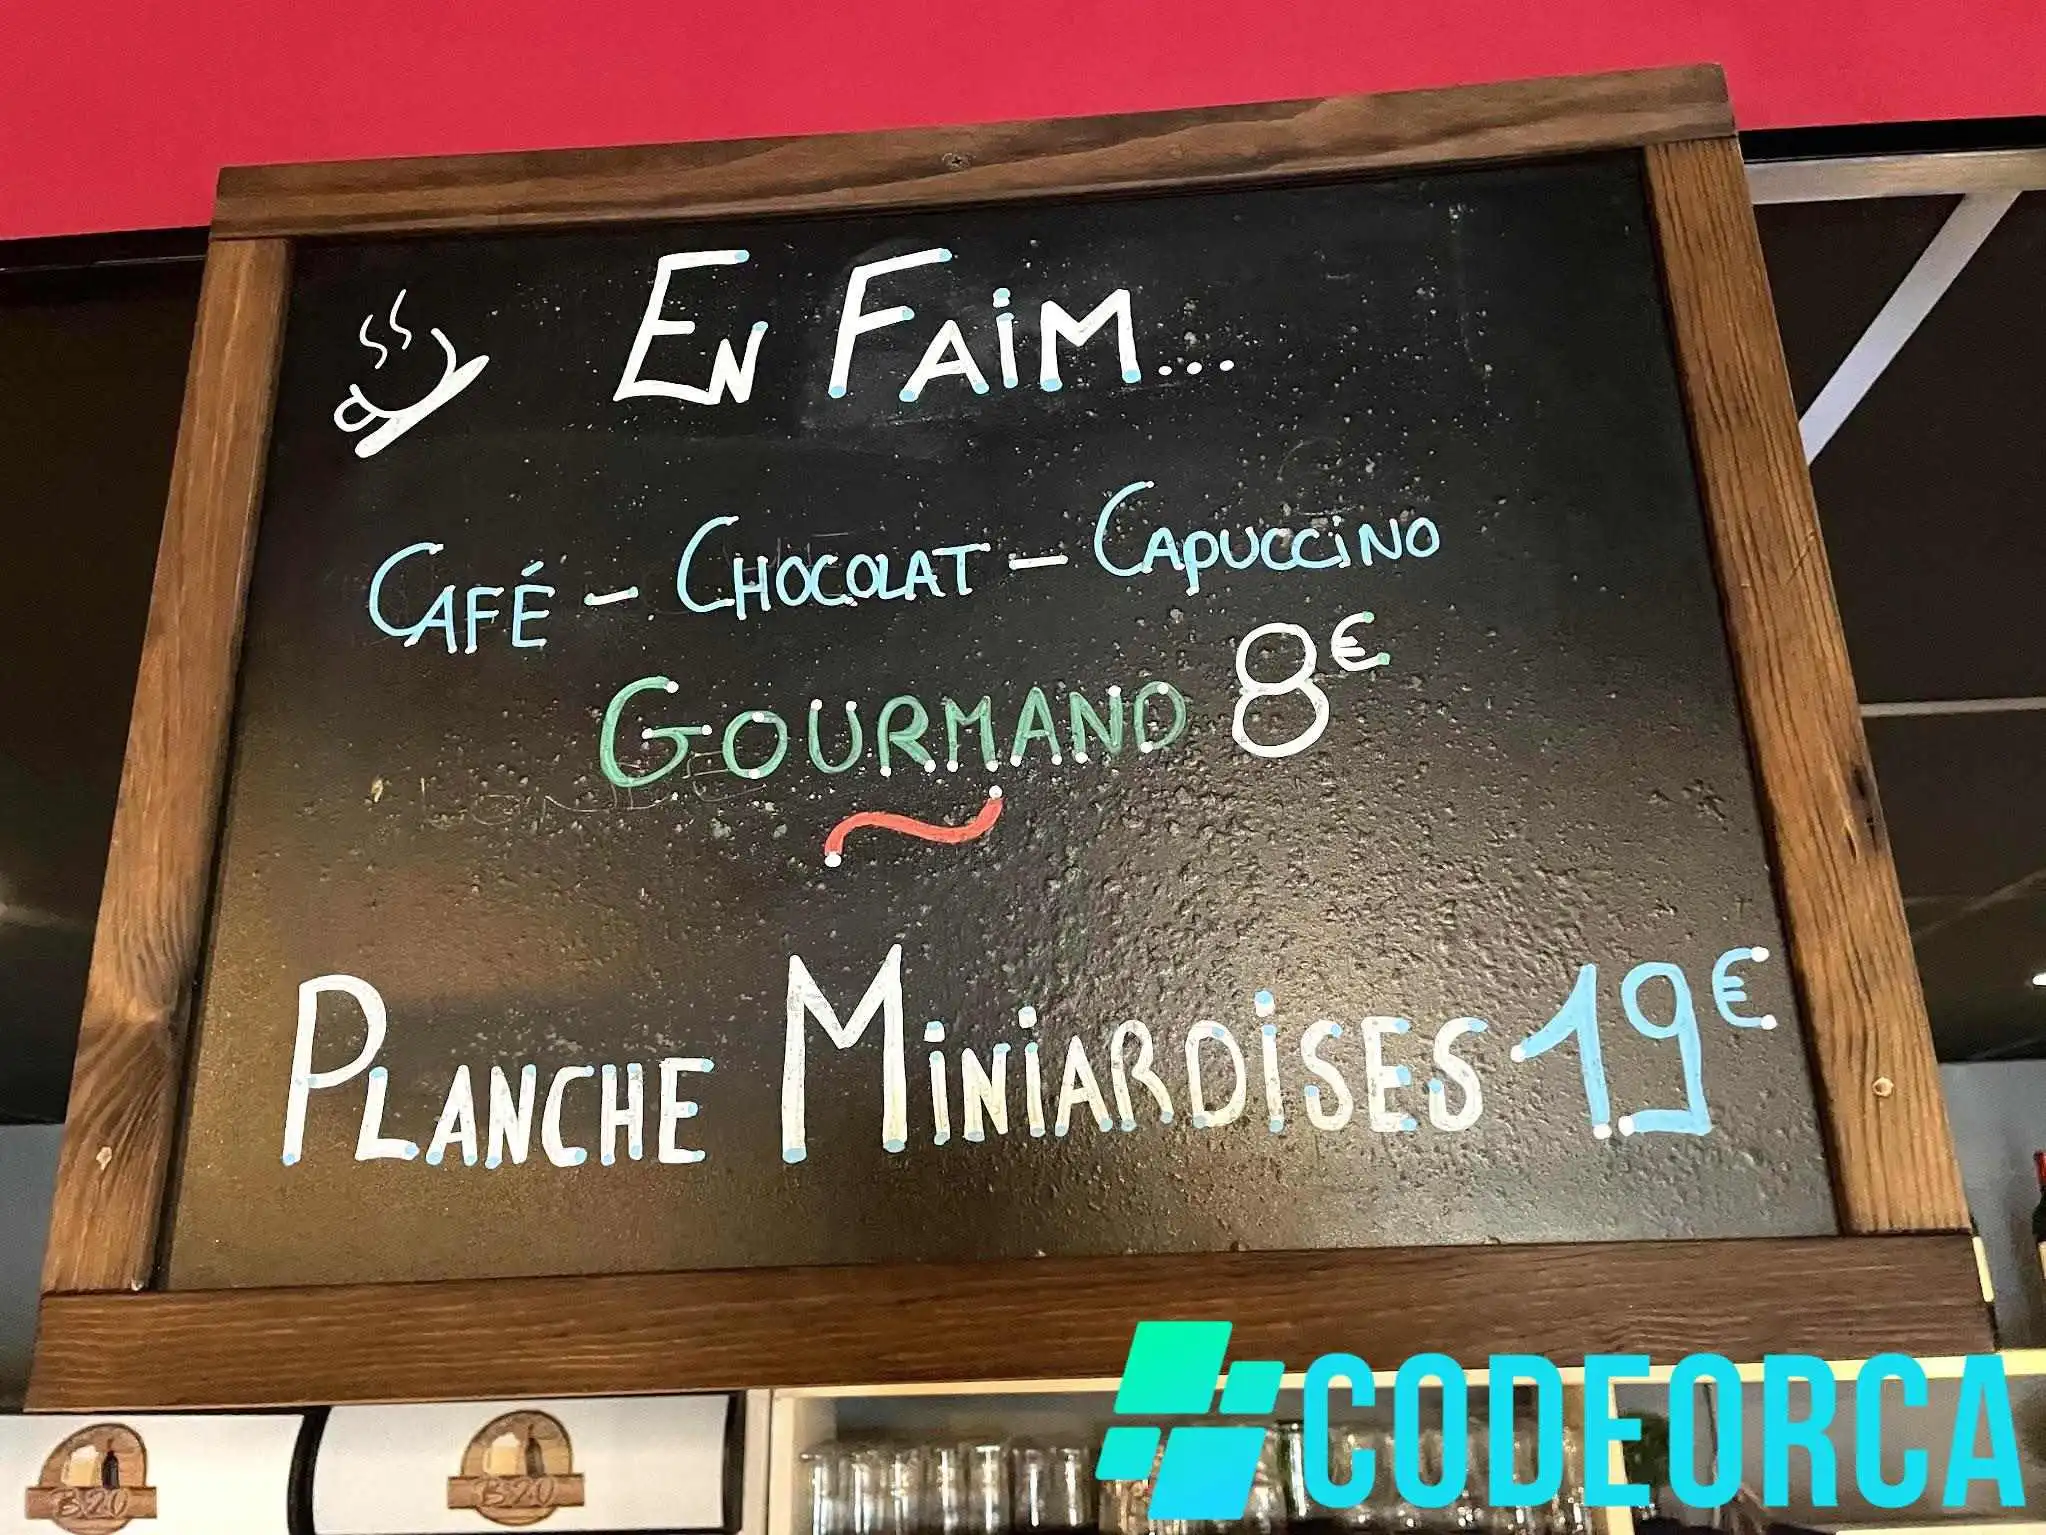 En Faim...
Café - Chocolat - Capuccino
Gourmand 8€
Planche Miniardises 19€
B.20
B.20
CODEORCA